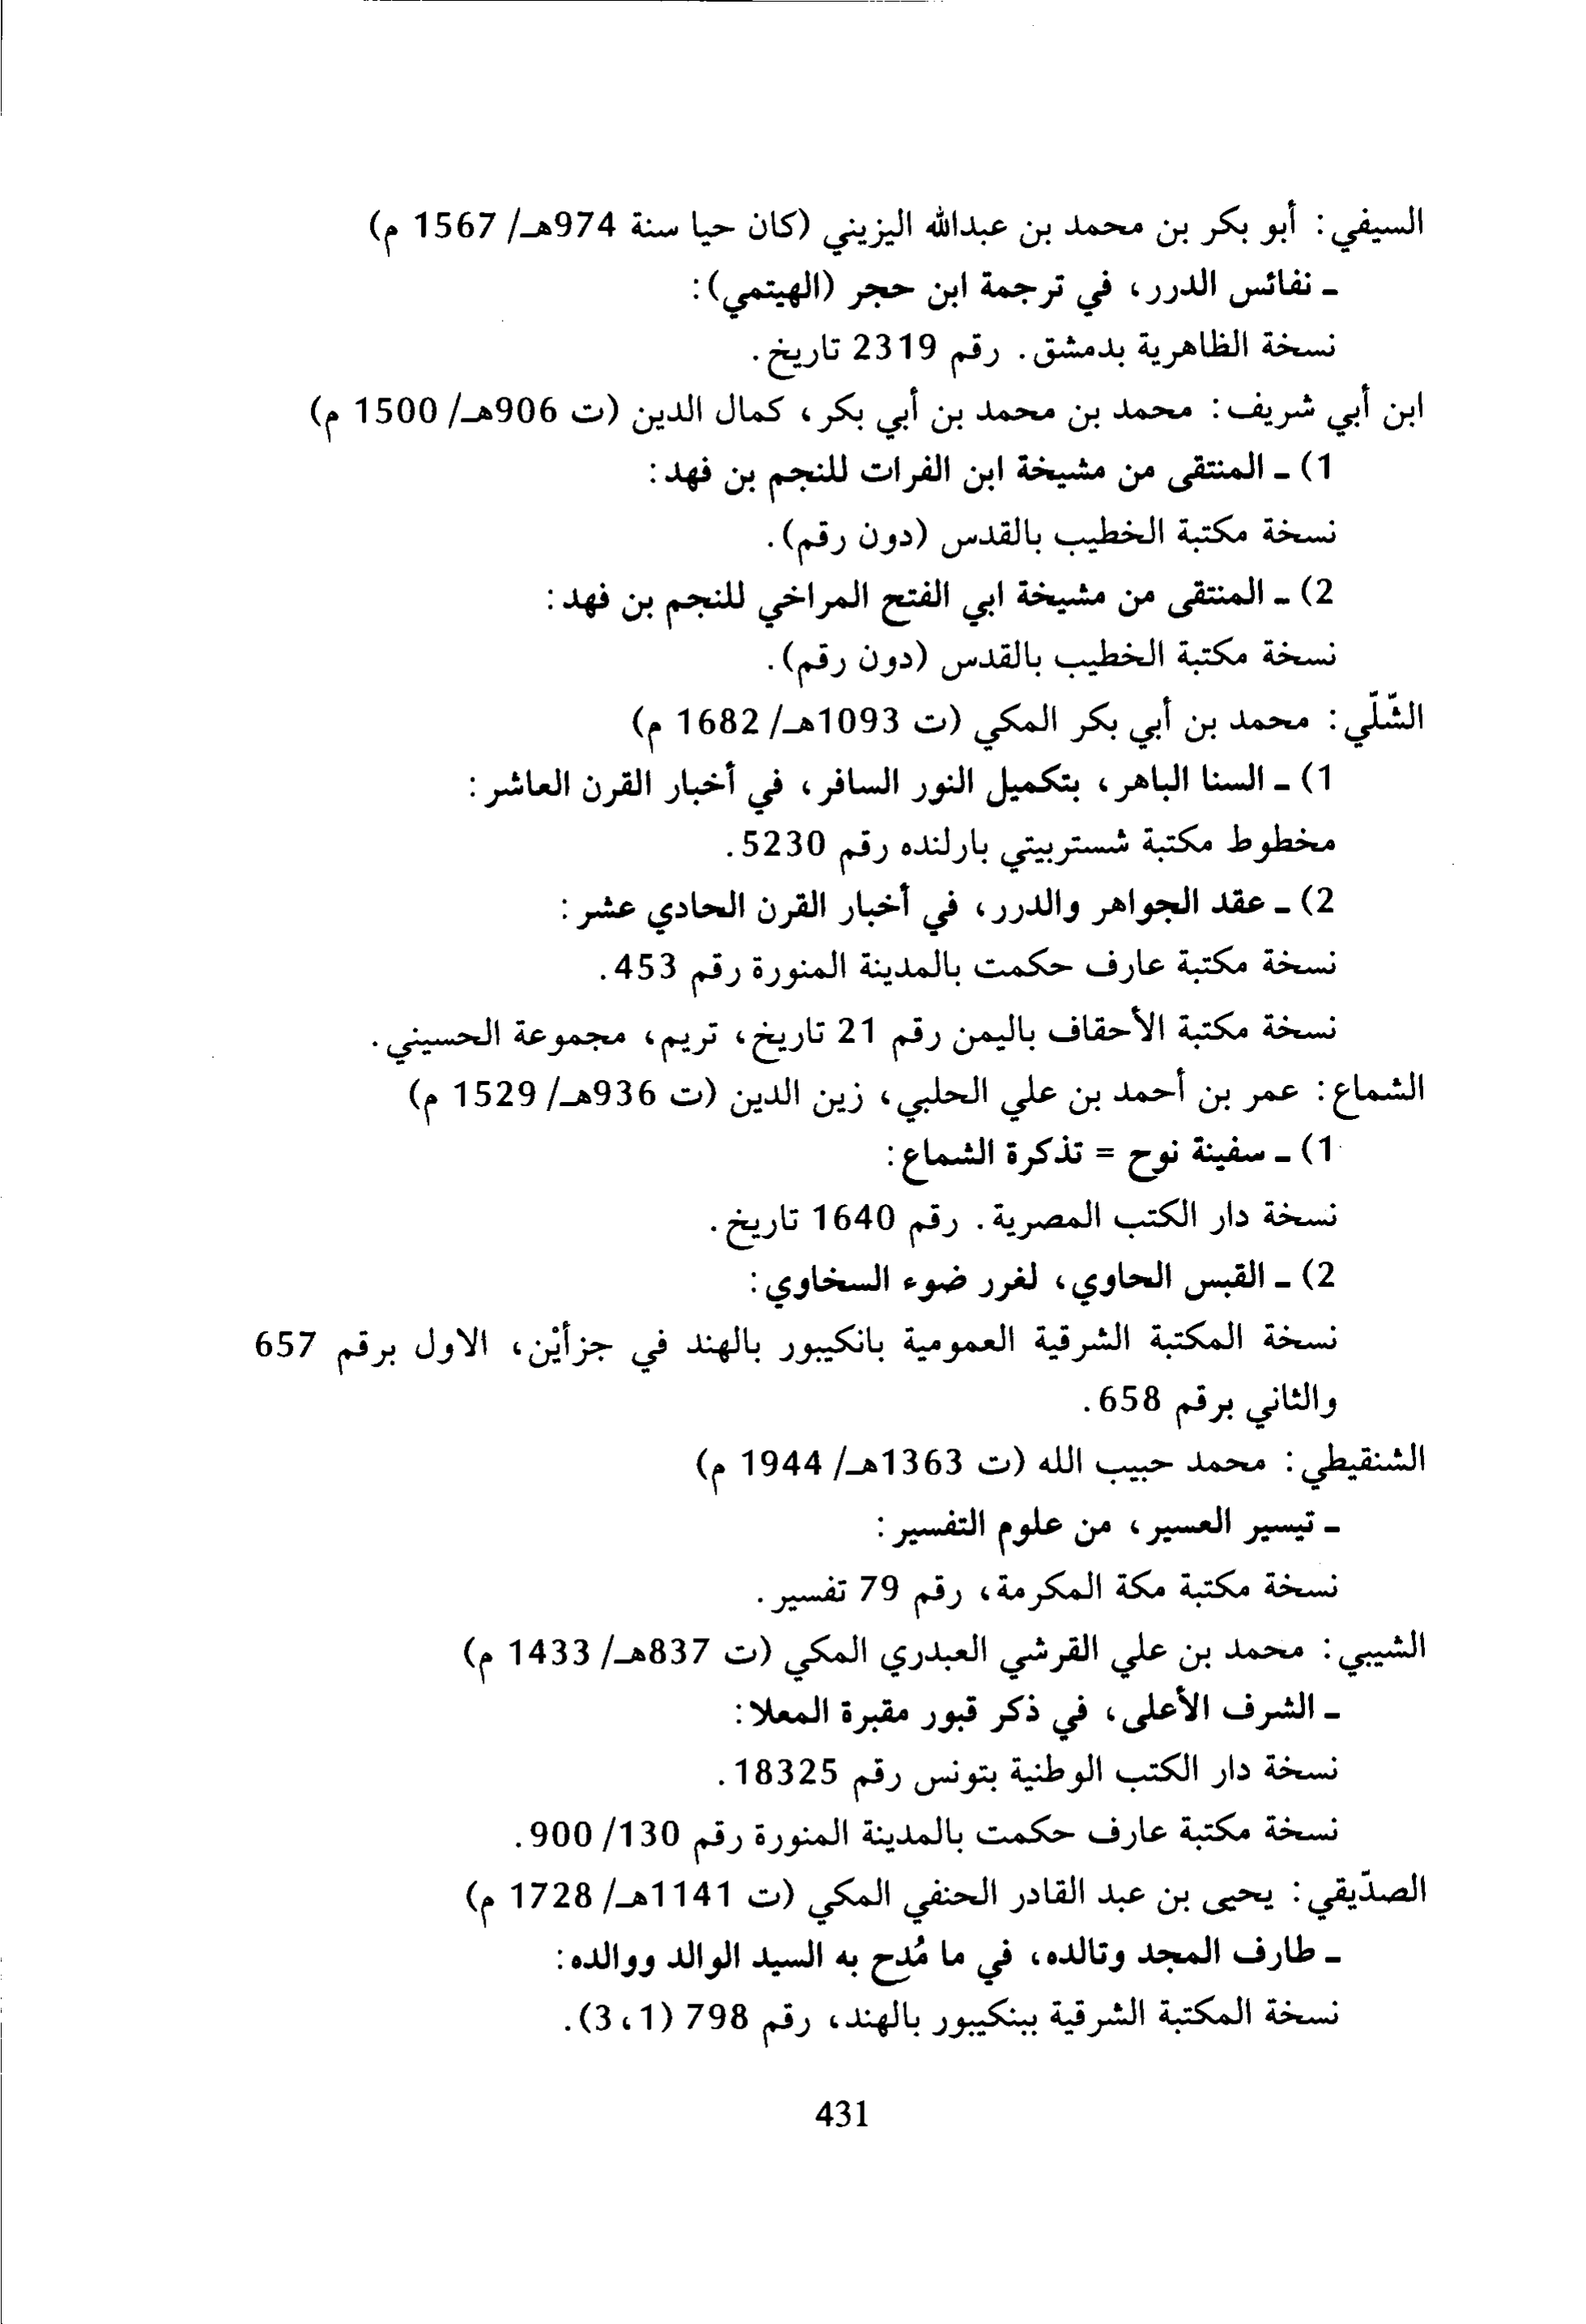 السيفي: أبو بكر بن محمد بن عبدالله اليزيني (كان حيا سنة 974هـ/ 1567 م)
ـ نفائس الدرر، في ترجمة ابن حجر (الهيتمي):
نسخة الظاهرية بدمشق. رقم 2319 تاريخ.
ابن أبي شريف: محمد بن محمد بن أبي بكر، كمال الدين (ت 906هـ/ 1500 م)
1) ـ المنتقى من مشيخة ابن الفرات للنجم بن فهد:
نسخة مكتبة الخطيب بالقدس (دون رقم).
2) ـ المنتقى من مشيخة ابي الفتح المراخي للنجم بن فهد:
نسخة مكتبة الخطيب بالقدس (دون رقم).
الشّلّي: محمد بن أبي بكر المكي (ت 1093هـ/ 1682 م)
1) ـ السنا الباهر، بتكميل النور السافر، في أخبار القرن العاشر:
مخطوط مكتبة شستربيتي بارلنده رقم 5230.
2) ـ عقد الجواهر والدرر، في أخبار القرن الحادي عشر:
نسخة مكتبة عارف حكمت بالمدينة المنورة رقم 453.
نسخة مكتبة الأحقاف باليمن رقم 21 تاريخ، تريم، مجموعة الحسيني.
الشماع: عمر بن أحمد بن علي الحلبي، زين الدين (ت 936هـ/ 1529 م)
1) ـ سفينة نوح = تذكرة الشماع:
نسخة دار الكتب المصرية. رقم 1640 تاريخ.
2) ـ القبس الحاوي، لغرر ضوء السخاوي:
نسخة المكتبة الشرقية العمومية بانكيبور بالهند في جزأيْن، الاول برقم 657
والثاني برقم 658.
الشنقيطي: محمد حبيب الله (ت 1363هـ/ 1944 م)
ـ تيسير العسير، من علوم التفسير:
نسخة مكتبة مكة المكرمة، رقم 79 تفسير.
الشيبي: محمد بن علي القرشي العبدري المكي (ت 837هـ/ 1433 م)
ـ الشرف الأعلى، في ذكر قبور مقبرة المعلا:
نسخة دار الكتب الوطنية بتونس رقم 18325.
نسخة مكتبة عارف حكمت بالمدينة المنورة رقم 130/ 900.
الصدّيقي: يحيى بن عبد القادر الحنفي المكي (ت 1141هـ/ 1728 م)
ـ طارف المجد وتالده، في ما مُدح به السيد الوالد ووالده:
نسخة المكتبة الشرقية ببنكيبور بالهند، رقم 798 (1، 3).
431